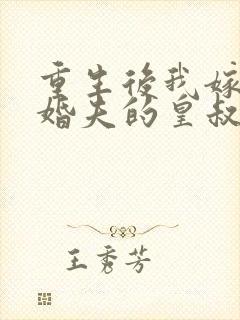 重生後我嫁
婚夫的皇叔
王秀芳